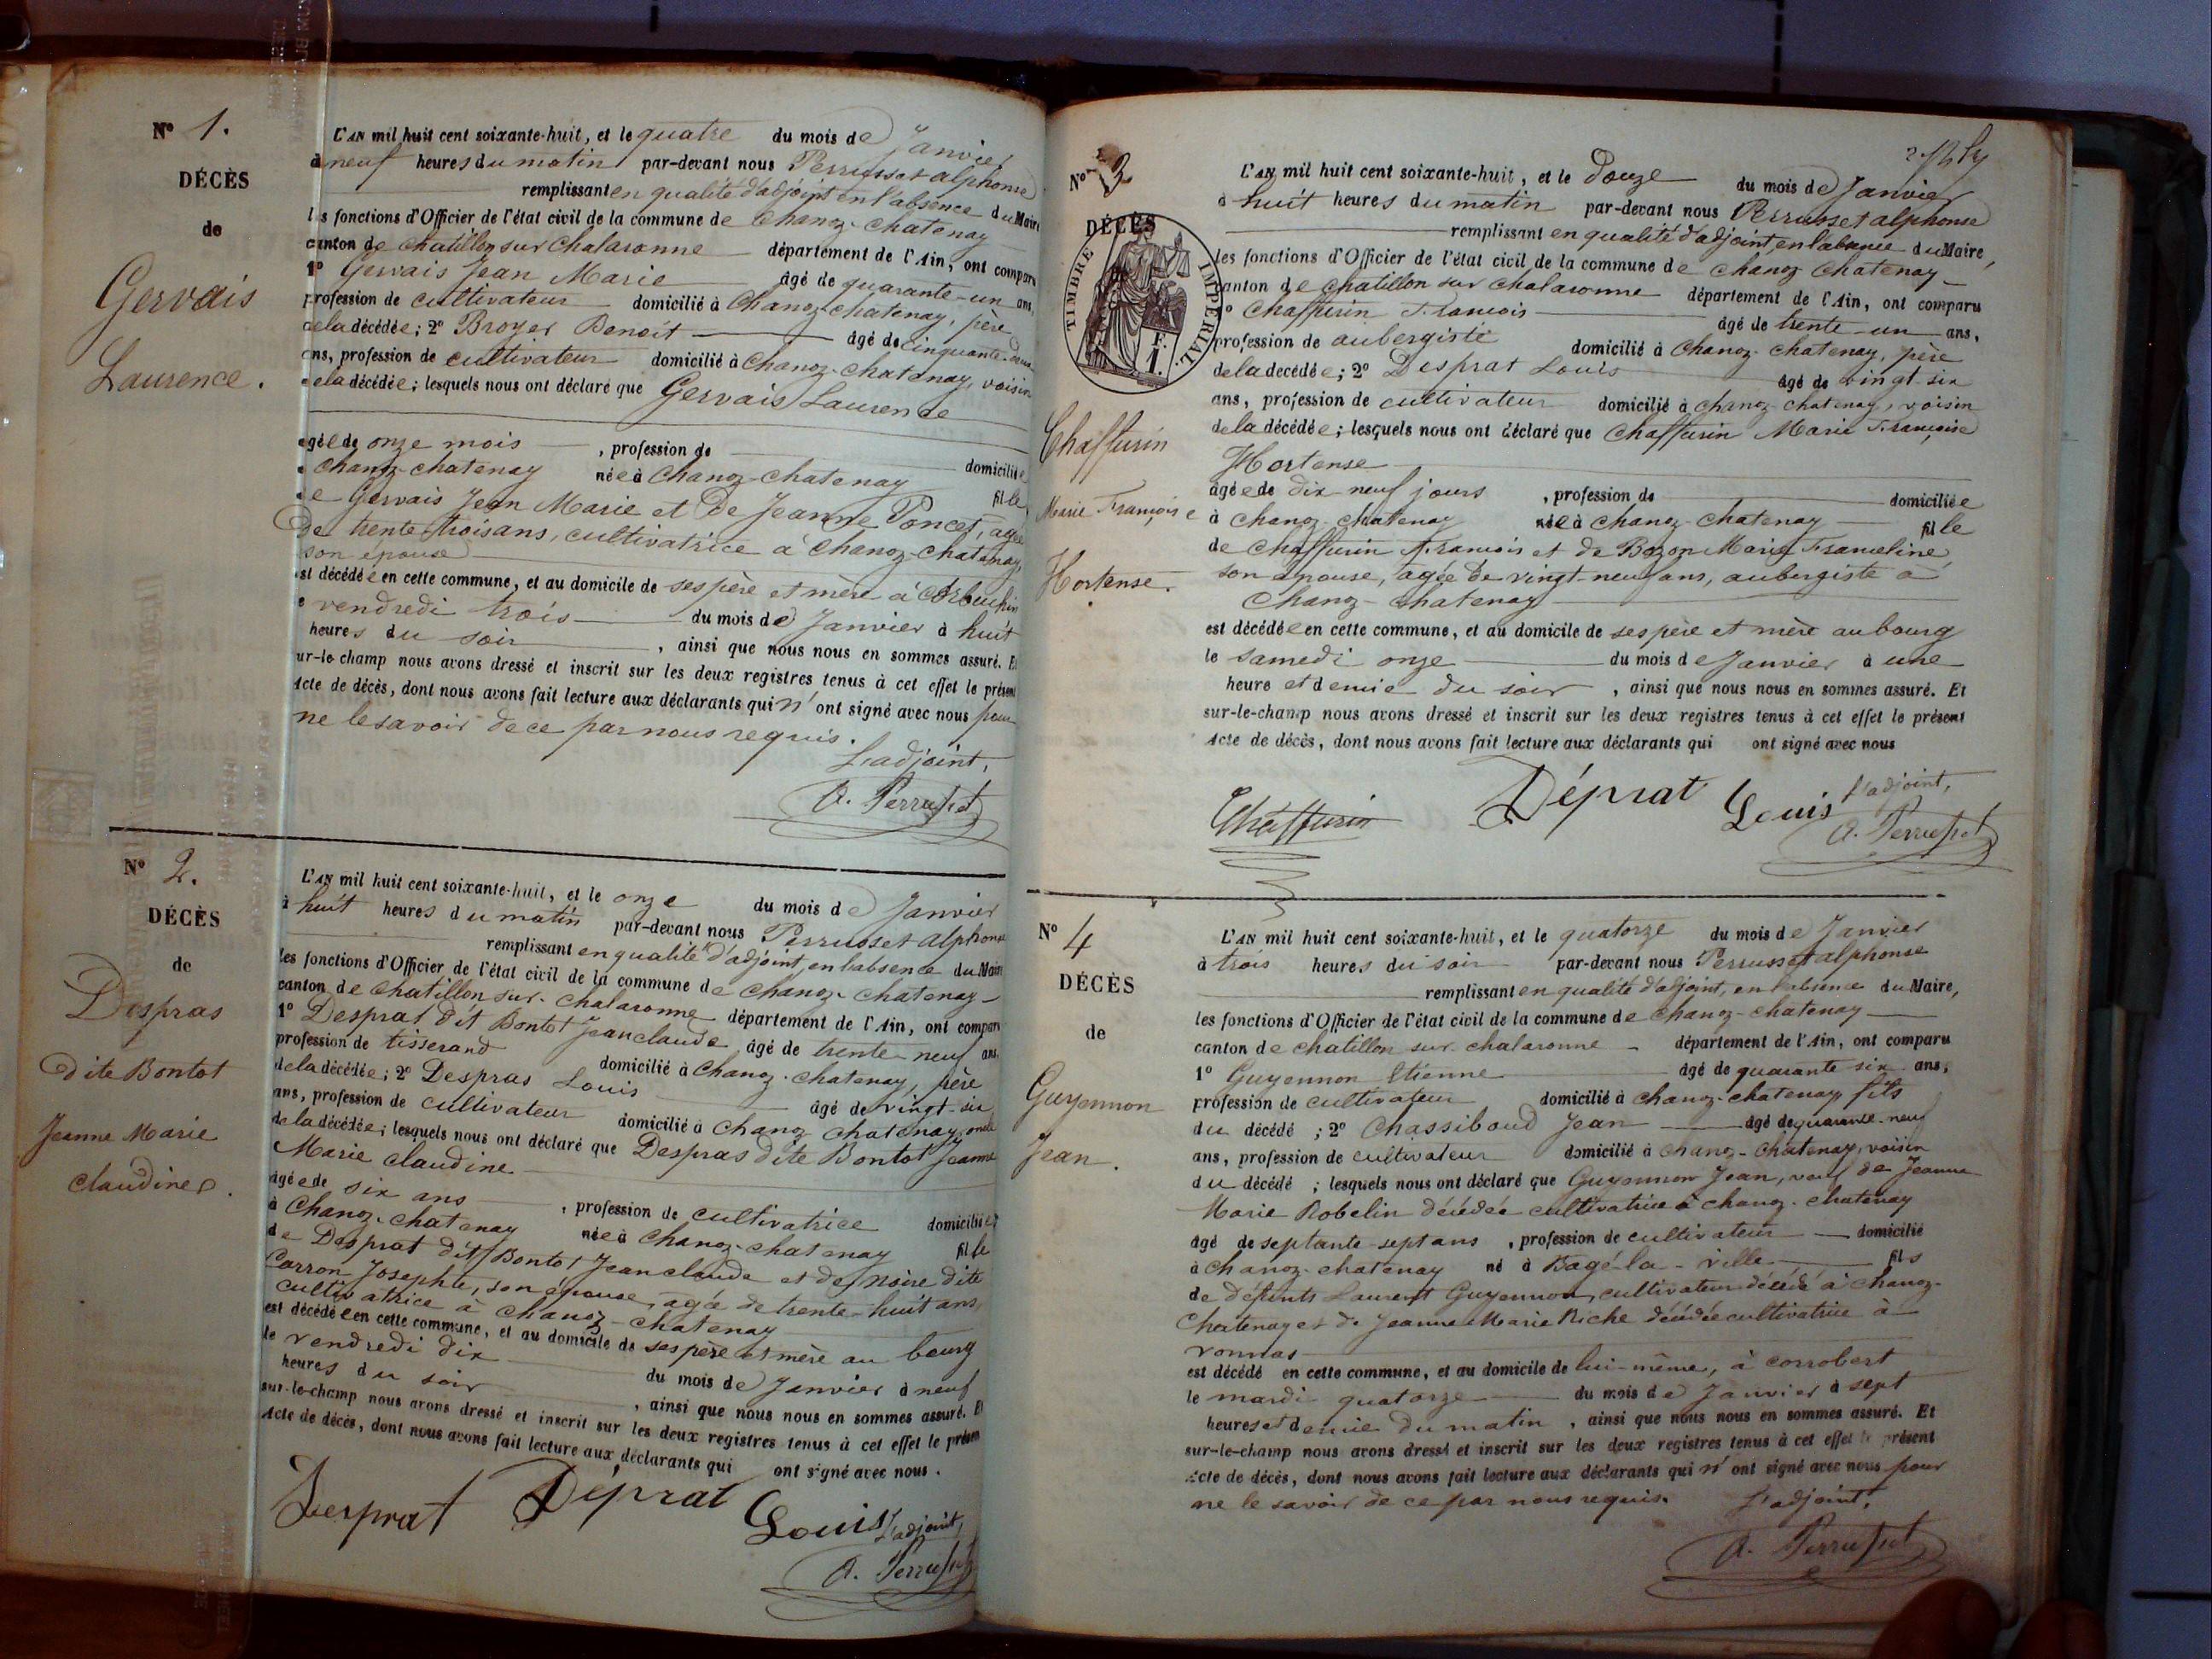 Nº 1.
DÉCÈS
de
Gervais
Laurence.
L'AN mil huit cent soixante-huit, et le quatre du mois de Janvier
à neuf heures du matin par-devant nous Perrusset alphonse
remplissant en qualité d'adjoint en l'absence du Maire
les fonctions d'Officier de l'état civil de la commune de Chanoz-Chatenay
canton de chatillon sur chalaronne département de l'Ain, ont comparu
1º Gervais Jean Marie âgé de quarante-un ans,
profession de cultivateur domicilié à Chanoz-chatenay, père
de la décédée; 2º Broyer Benoît âgé de cinquante-deux
ans, profession de cultivateur domicilié à Chanoz-chatenay, voisin
de la décédée; lesquels nous ont déclaré que Gervais Laurence
âgée de onze mois , profession de domiciliée
à Chanoz-chatenay née à Chanoz-chatenay fille
de Gervais Jean Marie et de Jeanne Poncet, agée
de trente trois ans, cultivatrice à Chanoz-chatenay,
son épouse
est décédée en cette commune, et au domicile de ses père et mère à
le vendredi trois du mois de Janvier à huit
heures du soir , ainsi que nous nous en sommes assuré. Et
sur-le-champ nous avons dressé et inscrit sur les deux registres tenus à cet effet le présent
Acte de décès, dont nous avons fait lecture aux déclarants qui n'ont signé avec nous pour
ne le savoir de ce par nous requis.
L'adjoint,
A. Perrusset
Nº 2.
DÉCÈS
de
Despras
dite Bontot
Jeanne Marie
claudine.
L'AN mil huit cent soixante-huit, et le onze du mois de Janvier
à huit heures du matin par-devant nous Perrusset alphonse
remplissant en qualité d'adjoint, en l'absence du Maire
les fonctions d'Officier de l'état civil de la commune de Chanoz-chatenay
canton de chatillon sur-chalaronne département de l'Ain, ont comparu
1º Desprat dit Bontot Jean claude âgé de trente neuf ans,
profession de tisserand domicilié à Chanoz-chatenay, père
de la décédée; 2º Despras Louis âgé de vingt-six
ans, profession de cultivateur domicilié à Chanoz chatenay, oncle
de la décédée; lesquels nous ont déclaré que Despras dite Bontot Jeanne
Marie claudine
âgée de six ans , profession de cultivatrice domiciliée
à Chanoz-chatenay née à Chanoz-chatenay fille
de Desprat dit Bontot Jean claude et de Noire dite
Carron Josephte, son épouse, agée de trente-huit ans,
cultivatrice à Chanoz-chatenay
est décédée en cette commune, et au domicile de ses père et mère au bourg
le vendredi dix du mois de Janvier à neuf
heures du soir , ainsi que nous nous en sommes assuré. Et
sur-le-champ nous avons dressé et inscrit sur les deux registres tenus à cet effet le présent
Acte de décès, dont nous avons fait lecture aux déclarants qui ont signé avec nous.
Desprat Déprat Louis L'adjoint,
A. Perrusset
Nº 3
DÉCÈS
TIMBRE IMPÉRIAL
1 F.
Chaffurin
Marie Françoise
Hortense.
L'AN mil huit cent soixante-huit, et le Douze du mois de Janvier
à huit heures du matin par-devant nous Perrusset alphonse
remplissant en qualité d'adjoint, en l'absence du Maire,
les fonctions d'Officier de l'état civil de la commune de chanoz Chatenay
canton de chatillon sur chalaronne département de l'Ain, ont comparu
1º Chaffurin François âgé de trente-un ans,
profession de aubergiste domicilié à Chanoz-chatenay, père
de la décédée; 2º Desprat Louis âgé de vingt-six
ans, profession de cultivateur domicilié à chanoz-chatenay, voisin
de la décédée; lesquels nous ont déclaré que Chaffurin Marie Françoise
Hortense
âgée de dix neuf jours , profession de domiciliée
à chanoz-chatenay née à chanoz-chatenay fille
de Chaffurin François et de Bozon Marie Franceline
son épouse, agée de vingt-neuf ans, aubergiste à
Chanoz-chatenay
est décédée en cette commune, et au domicile de ses père et mère au bourg
le samedi onze du mois de Janvier à une
heure et demie du soir , ainsi que nous nous en sommes assuré. Et
sur-le-champ nous avons dressé et inscrit sur les deux registres tenus à cet effet le présent
Acte de décès, dont nous avons fait lecture aux déclarants qui ont signé avec nous
Chaffurin Déprat Louis l'adjoint,
A. Perrusset
Nº 4
DÉCÈS
de
Guyennon
Jean.
L'AN mil huit cent soixante-huit, et le quatorze du mois de Janvier
à trois heures du soir par-devant nous Perrusset alphonse
remplissant en qualité d'adjoint, en l'absence du Maire,
les fonctions d'Officier de l'état civil de la commune de chanoz-chatenay
canton de chatillon sur chalaronne département de l'Ain, ont comparu
1º Guyennon Etienne âgé de quarante six ans,
profession de cultivateur domicilié à chanoz-chatenay, fils
du décédé ; 2º Chassiboud Jean âgé de quarante-neuf
ans, profession de cultivateur domicilié à chanoz-chatenay, voisin
du décédé ; lesquels nous ont déclaré que Guyennon Jean, veuf de Jeanne
Marie Robelin décédée cultivatrice à chanoz-chatenay
âgé de septante-sept ans , profession de cultivateur domicilié
à chanoz-chatenay né à Bagé-la-ville fils
de défunts Laurent Guyennon, cultivateur décédé à chanoz-
Chatenay et de Jeanne Marie Riche décédée cultivatrice à
vonnas
est décédé en cette commune, et au domicile de lui-même, à corrobert
le mardi quatorze du mois de Janvier à sept
heures et demie du matin , ainsi que nous nous en sommes assuré. Et
sur-le-champ nous avons dressé et inscrit sur les deux registres tenus à cet effet le présent
Acte de décès, dont nous avons fait lecture aux déclarants qui n'ont signé avec nous pour
ne le savoir de ce par nous requis. L'adjoint,
A. Perrusset